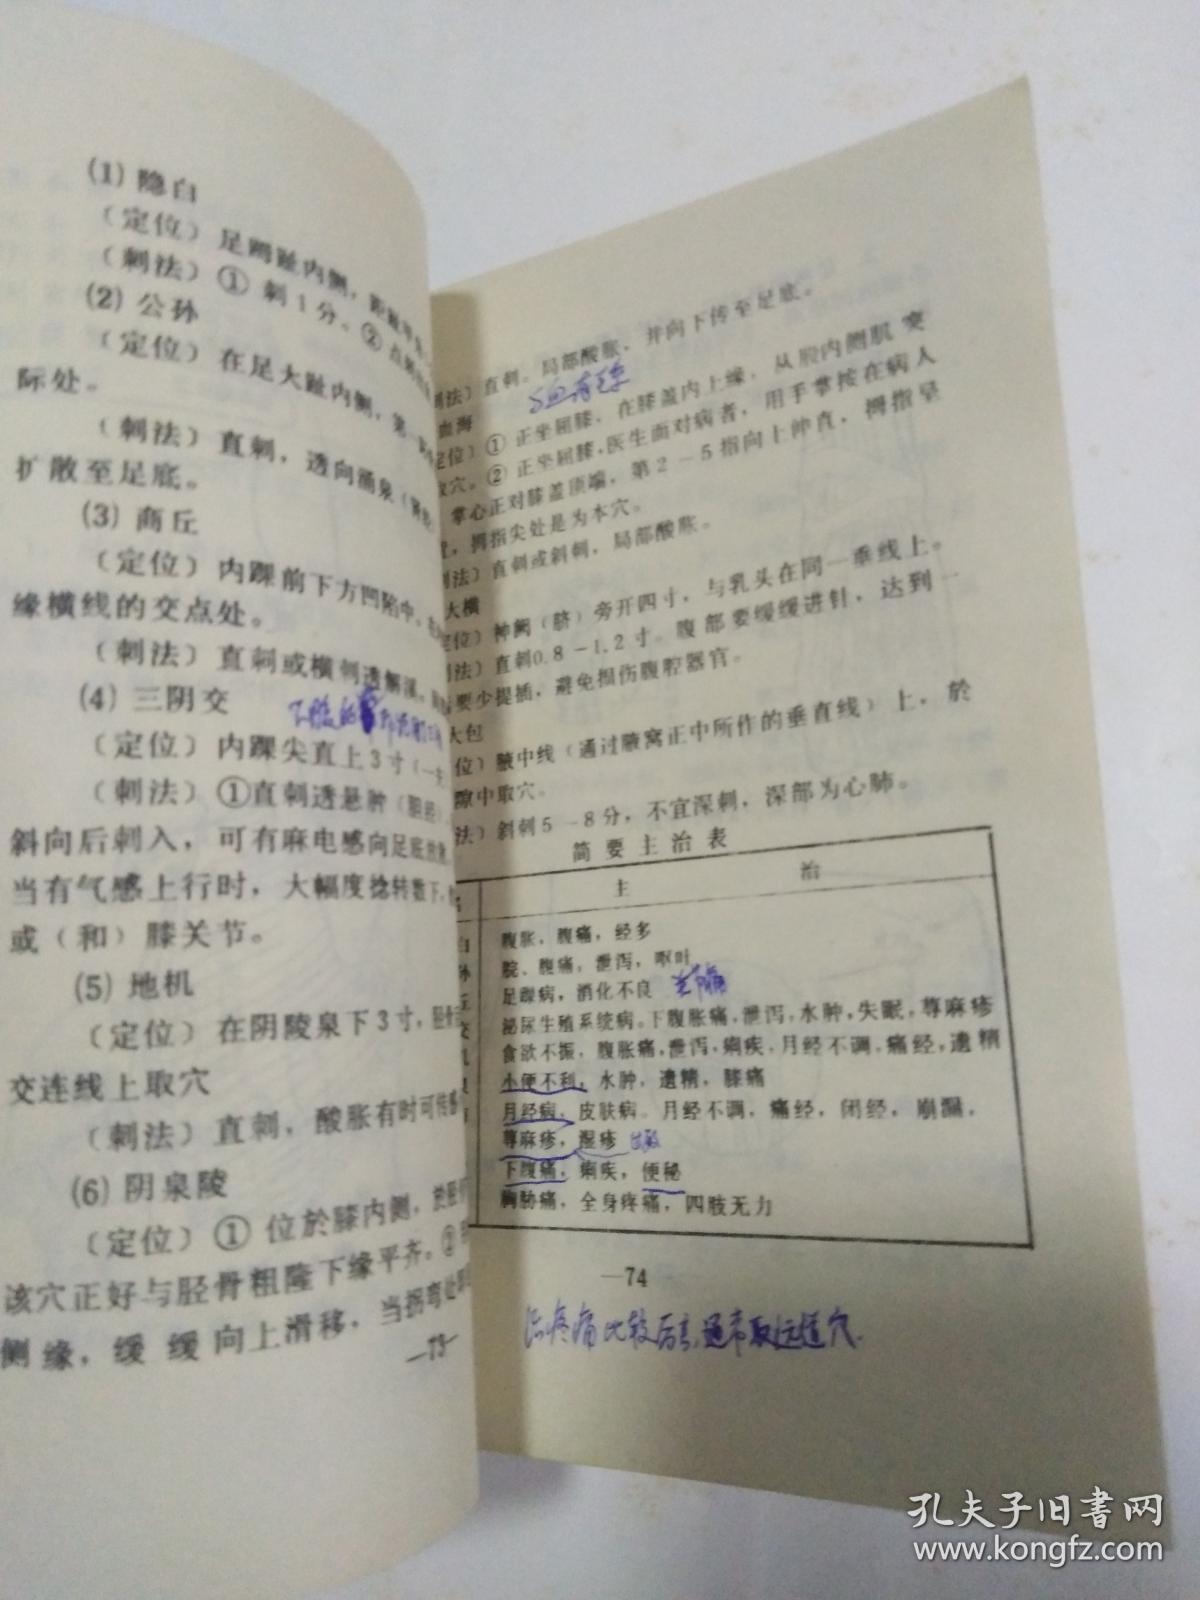 (1) 隐白
（定位）足踇趾内侧，距趾甲角
（刺法）① 刺1分。② 点刺出血
(2) 公孙
（定位）在足大趾内侧，第一
际处。
（刺法）直刺，透向涌泉（肾经
扩散至足底。
(3) 商丘
（定位）内踝前下方凹陷中，
缘横线的交点处。
（刺法）直刺或横刺透解溪。
(4) 三阴交
（定位）内踝尖直上3寸（一夫
（刺法）①直刺透悬肿（胆经）
斜向后刺入，可有麻电感向足底
当有气感上行时，大幅度捻转数下，
或（和）膝关节。
(5) 地机
（定位）在阴陵泉下3寸，胫骨
交连线上取穴
（刺法）直刺，酸胀有时可传
(6) 阴泉陵
（定位）① 位於膝内侧，於胫
该穴正好与胫骨粗隆下缘平齐。②
侧缘，缓缓向上滑移，当拐弯处
—73—
刺法）直刺。局部酸胀，并向下传至足底。
血海
定位）① 正坐屈膝，在膝盖内上缘，从股内侧肌突
取穴。② 正坐屈膝，医生面对病者，用手掌按在病人
掌心正对膝盖顶端，第2－5指向上伸直，拇指呈
拇指尖处是为本穴。
刺法）直刺或斜刺，局部酸胀。
大横
定位）神阙（脐）旁开四寸，与乳头在同一垂线上。
刺法）直刺0.8－1.2寸。腹部要缓缓进针，达到一
要少提插，避免损伤腹腔器官。
大包
位）腋中线（通过腋窝正中所作的垂直线）上，於
隙中取穴。
法）斜刺5－8分，不宜深刺，深部为心肺。
简要主治表
名 主 治
白 腹胀，腹痛，经多
孙 脘、腹痛，泄泻，呕吐
丘 足踝病，消化不良 关节痛
交 泌尿生殖系统病。下腹胀痛，泄泻，水肿，失眠，荨麻疹
机 食欲不振，腹胀痛，泄泻，痢疾，月经不调，痛经，遗精
泉 小便不利，水肿，遗精，膝痛
月经病，皮肤病。月经不调，痛经，闭经，崩漏，
荨麻疹，湿疹
下腹痛，痢疾，便秘
胸胁痛，全身疼痛，四肢无力
—74
治疼痛比较厉害，通常取远道穴.
孔夫子旧书网
www.kongfz.com